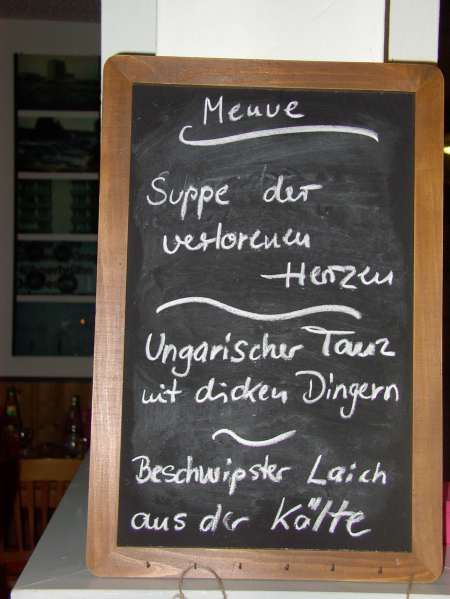 Menue
Suppe der
verlorenen
Herzen
Ungarischer Tanz
mit dicken Dingern
Beschwipster Laich
aus der Kälte